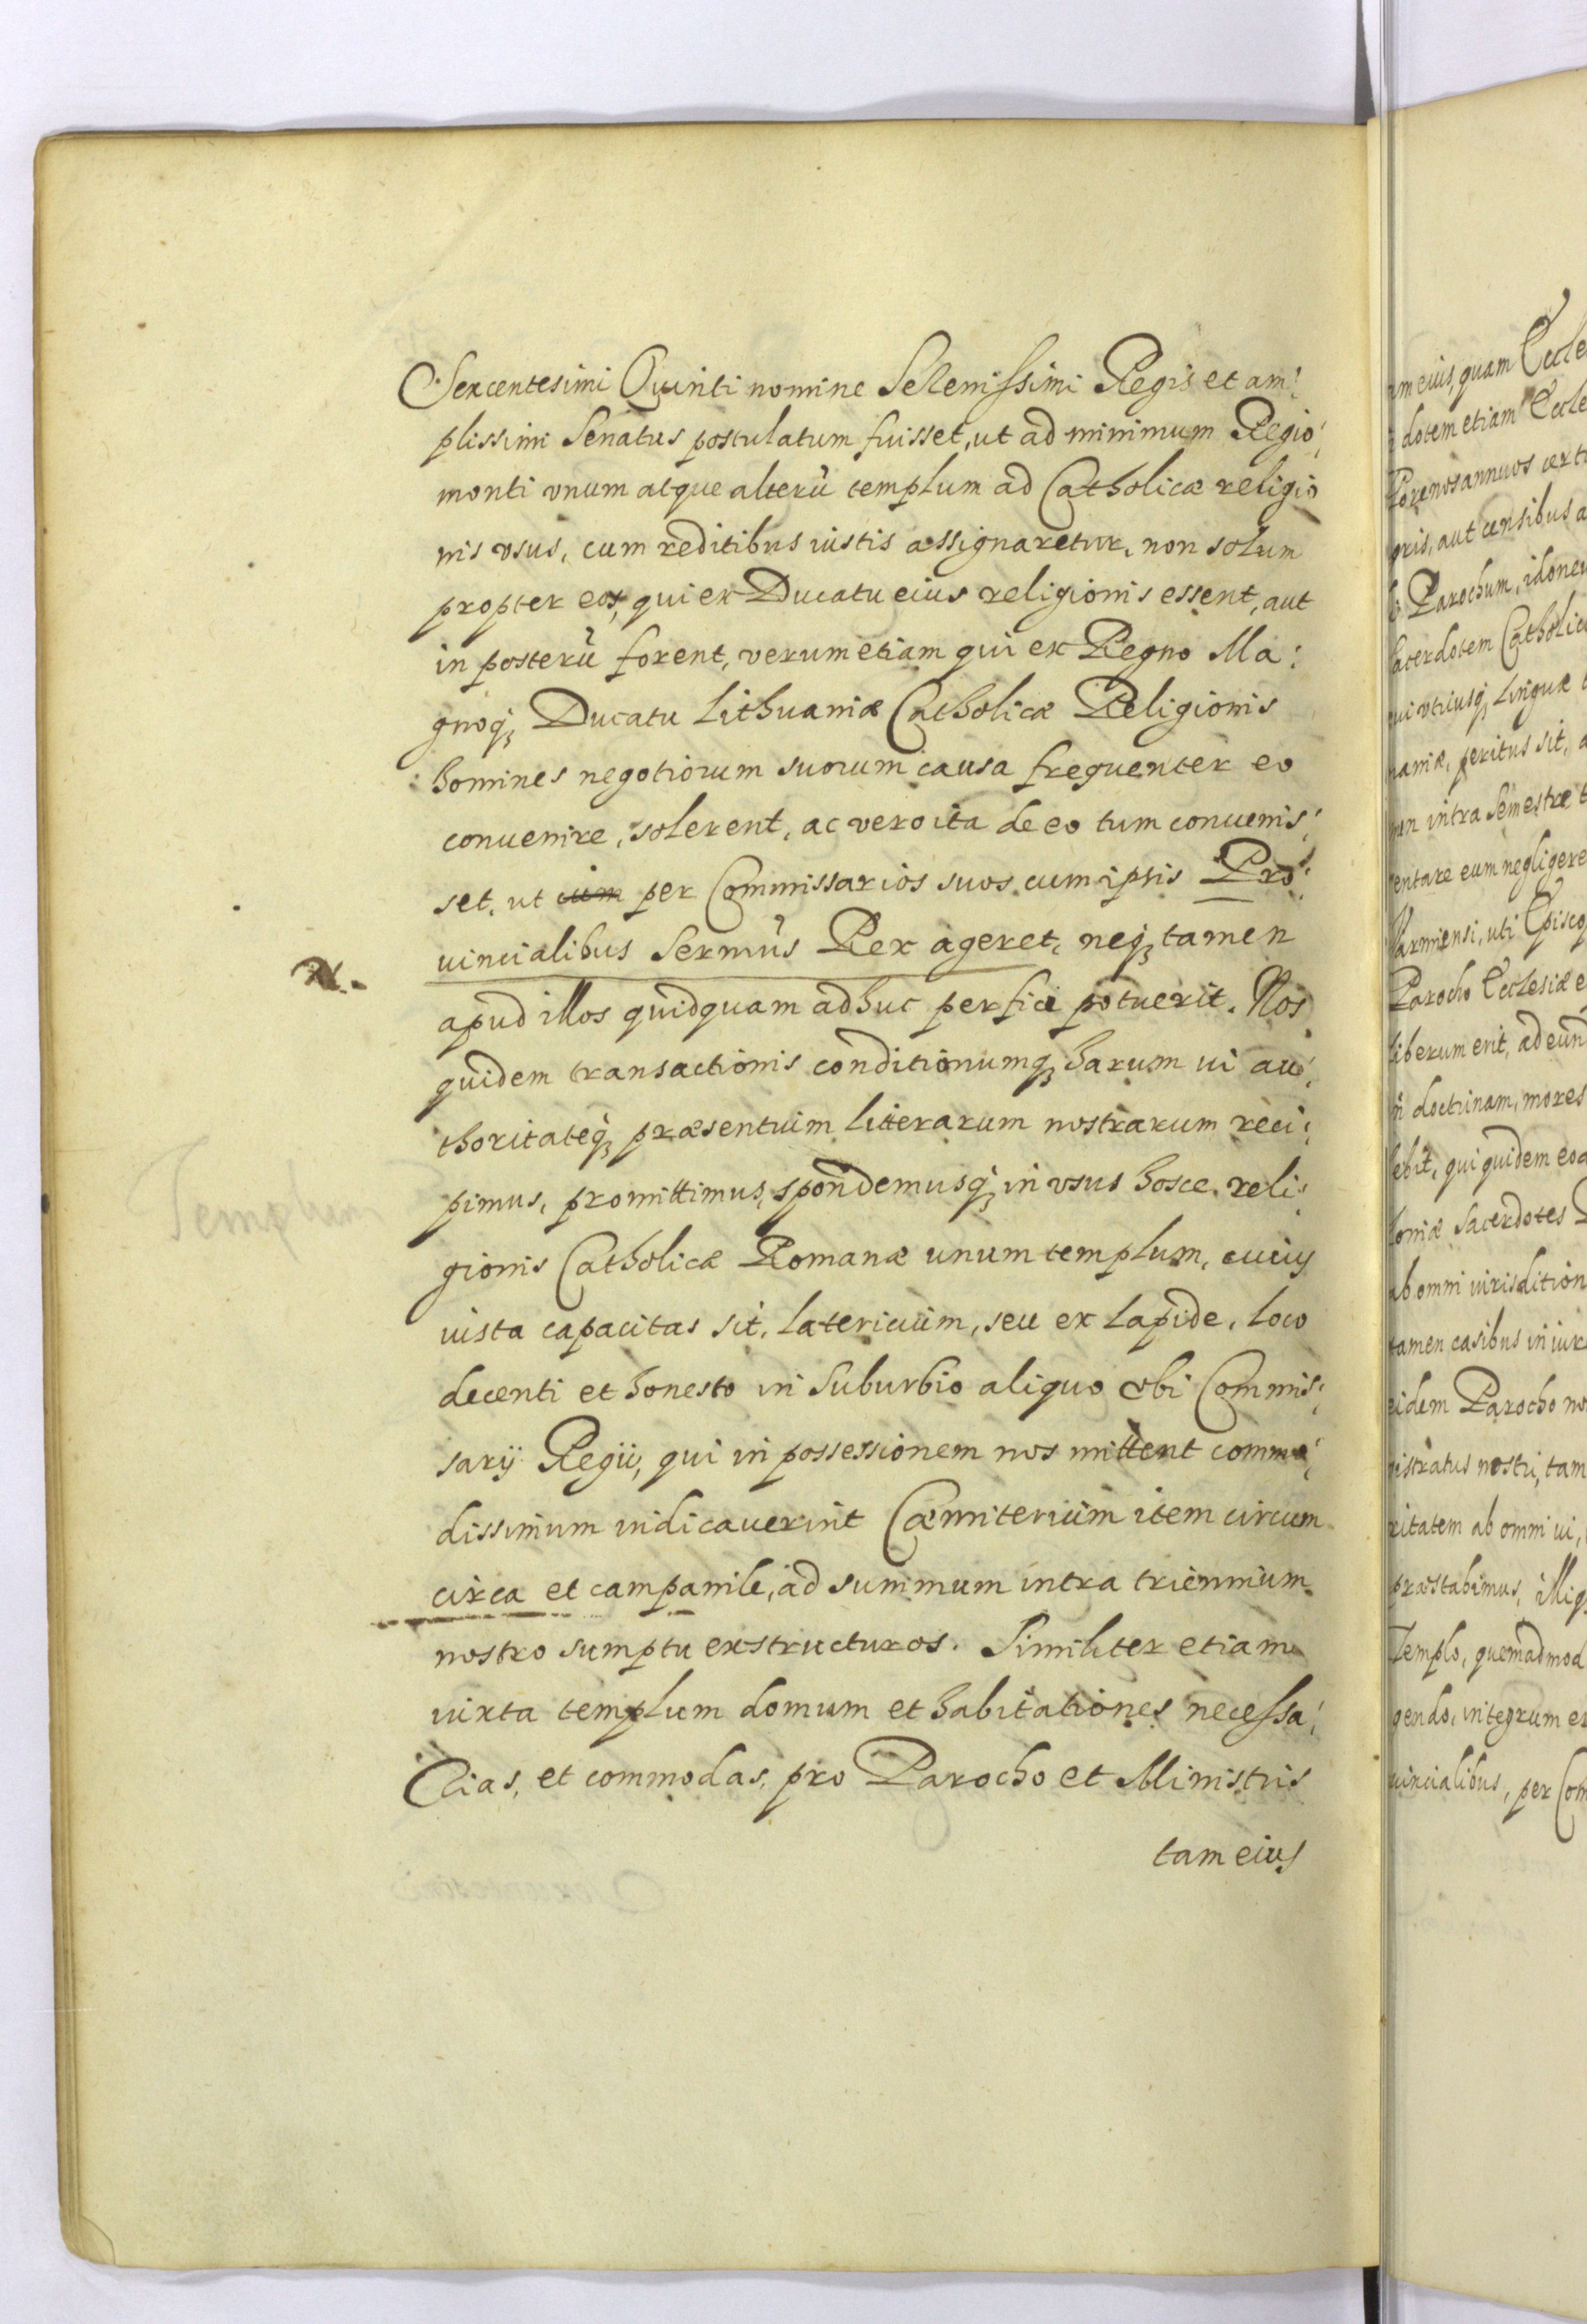 Sexcentesimi Quinti nomine Serenissimi Regis et am:
plissimi Senatus postulatum fuisset, ut ad minimum Regio:
monti vnum atque alterũ templum ad Catholicæ religio
nis vsus, cum reditibus iustis assignaretur, non solum
propter eos, qui ex Ducatu eius religionis essent, aut
in posterũ forent, verum etiam qui ex Regno Ma:
gnoq; Ducatu Lithuaniæ Catholicæ Religionis
homines negotiorum suorum causa frequenter eo
conuenire, solerent, ac vero ita de eo tum conuenis:
set, ut cum per Commissarios suos cum ipsis Pro:
uincialibus Sermũs Rex ageret, neq; tamen
apud illos quidquam adhuc perfici potuerit. Nos
quidem transactionis conditionumq; harum ui au:
thoritateq; præsentium litterarum nostrarum reci:
pimus, promittimus, spondemusq; in vsus hosce reli:
Templum
gionis Catholicæ Romanæ unum templum, cuius
iusta capacitas sit, latericium, seu ex lapide, loco
decenti et honesto in Suburbio aliquo vbi Commis:
sarij Regii, qui in possessionem nos mittent commo:
dissimum iudicauerint Cæmiterium item circum
circa et campanile, ad summum intra triennium
nostro sumptu exstructuros. Similiter etiam
iuxta templum domum et habitationes necessa:
rias, et commodas, pro Parocho et Ministris
tam eius
um eius, quam Eccle
dotem etiam Eccle
annuos
gris, aut censibus a
Parochum, idoneu
Sacerdotem Catholic
qui vtriusq; linguæ
maniæ, peritus sit, a
intra Semestre
entare eum negligere
Varmiensi, uti Episco
Parocho Ecclesiæ
liberum erit, ad eun
doctrinam, mores
ebit, qui quidem
loniæ Sacerdotes
ab omni iurisdition
tamen casibus in iur
eidem Parocho
gistratus nostri, tam
ritatem ab omni ui,
præstabimus, illiq;
Templo, quemadmod
gendo, integrum
uincialibus, per Com